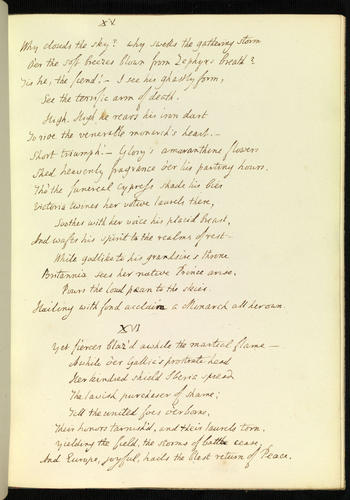 XV
Why clouds the sky? why swells the gathering storm
O'er the soft breezes blown from Zephyr's breath?
'Tis he, the fiend! – I see his ghastly form,
See the terrific arm of death.
High, High he rears his iron dart
To rive the venerable monarch's heart. –
Short triumph! – Glory's amaranthine flowers
Shed heavenly fragrance o'er his parting hours.
Tho' the funereal Cypress shade his bier
Victoria twines her votive laurels there,
Soothes with her voice his placid breast,
And wafts his spirit to the realms of rest –
While godlike to his grandsire's throne
Britannia sees her native Prince arise,
Pours the loud pæan to the skies
Hailing with fond acclaim a Monarch all her own.
XVI
Yet fiercer blaz'd awhile the martial flame –
Awhile o'er Gallia's prostrate head
Her kindred shield Iberia spread
The lavish purchaser of shame;
Till the united foes o'erbore,
Their honors tarnish'd, and their laurels torn,
Yielding the field, the storms of battle cease,
And Europe, joyful, hails the blest return of Peace.